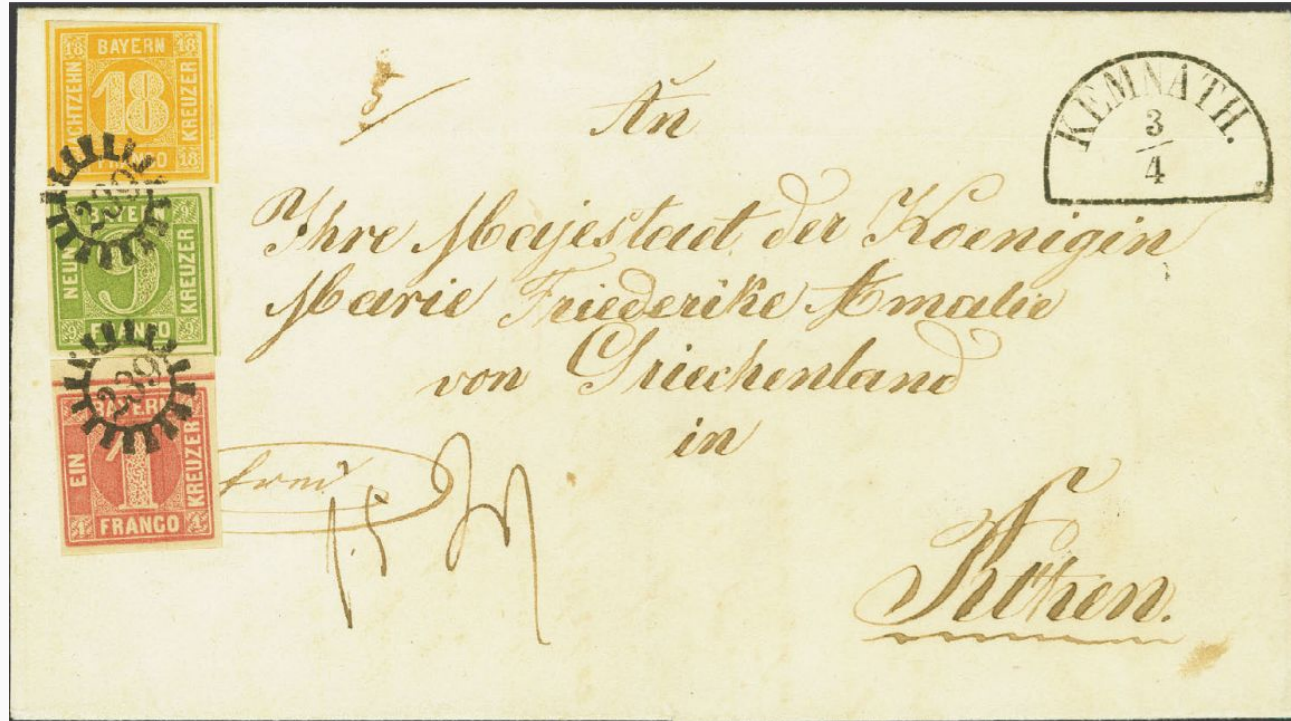 18 BAYERN 18
ACHTZEHN
18
KREUZER
FRANCO 18
BAYERN 9
9
KREUZER
9 FRANCO 9
BAYERN
EIN
1
KREUZER
1 FRANCO 1
KEMNATH.
3
4
An
Ihre Majestaet der Koenigin
Marie Friederike Amalie
von Griechenland
in
Athen.
frei